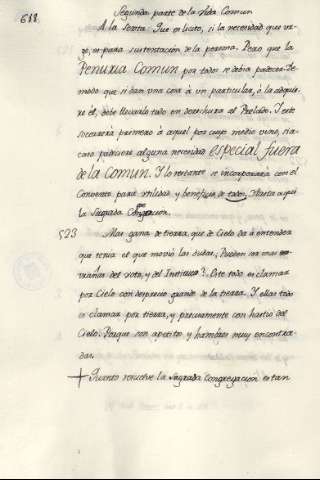 611 Segunda parte de la Vida Comun
A la Sexta: Que es licito, si la necesidad que ur-
ge, es para sustentacion de la persona. Pero que la
Penuria Comun por todos se debia padecer. De
modo que si dan una cosa à un particular, ó la adquie-
re él, debe llevarla todo en derechura al Prelado. Y este
socorrera primero à aquel por cuyo medio vino, si a-
caso padeciere alguna necesidad especial fuera
de la comun. Y lo restante se incorporarà con el
Convento para utilidad y beneficio de todos. Hasta aqui
la Sagrada Congregacion.
523 Mas gana de tierra, que de Cielo da à entender
que tenia el que movió las dudas, Pueden ser mas
viañas del voto, y del Instituto? Este todo es clamar
por Cielo con desprecio grande de la tierra. Y ellas todo
es clamar por tierra, y precisamente con hastio del
Cielo. Porque son apetito, y hambres muy encontra-
das.
Quanto resuelve la Sagrada Congregacion es tan